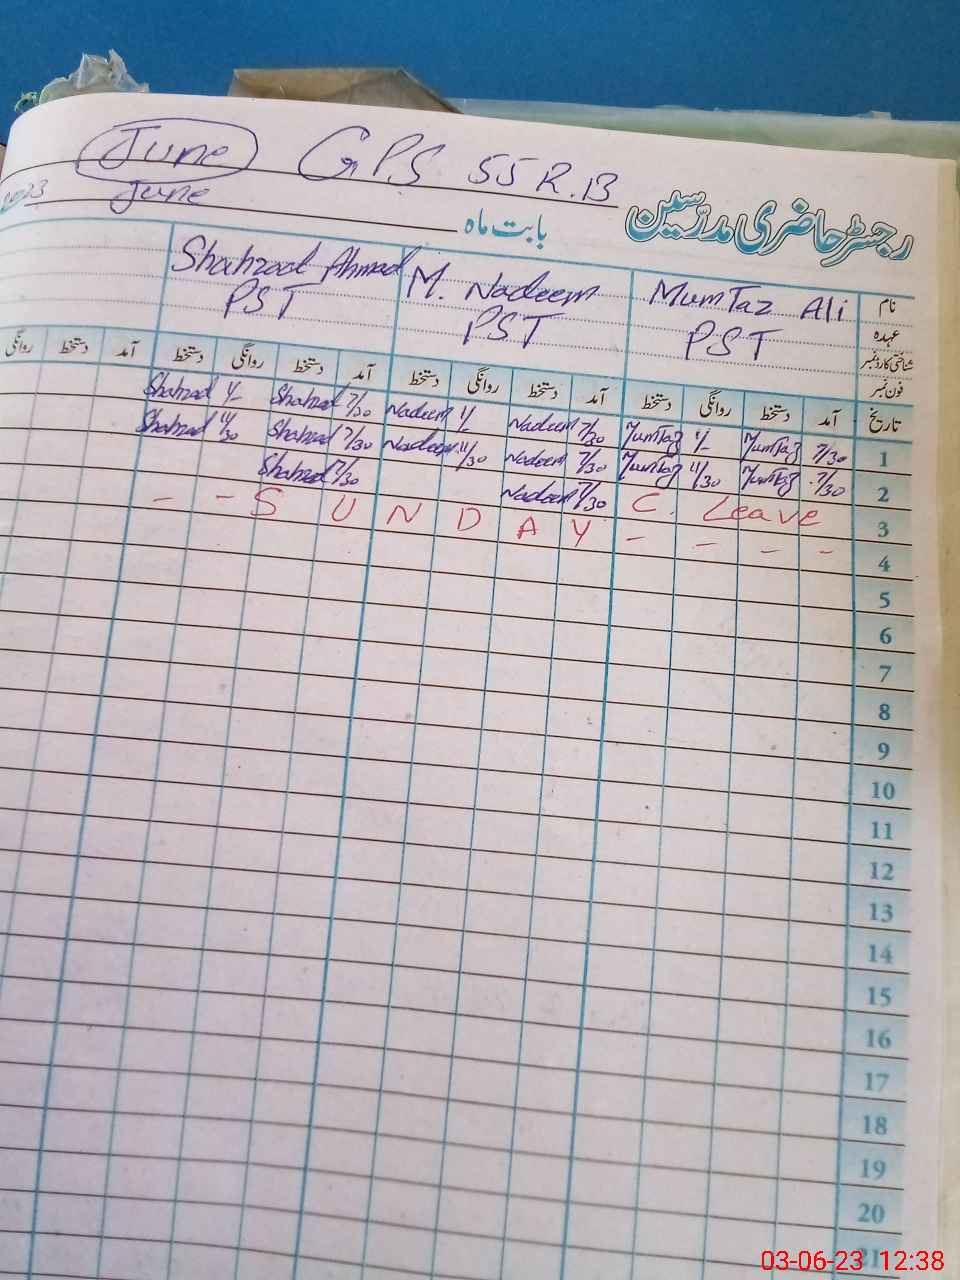 June GPS 55 R.B
رجسٹر حاضری مدرسین
بابت ماہ June 2023
نام Mumtaz Ali M. Nadeem Shahzad Ahmad
عہدہ PST PST PST
شناختی کارڈ نمبر
فون نمبر
تاریخ آمد دستخط روانگی دستخط آمد دستخط روانگی دستخط آمد دستخط روانگی دستخط آمد دستخط روانگی
1 7/30 Mumtaz 1/- Mumtaz 7/30 Nadeem 1/- Nadeem 7/30 Shahzad 1/- Shahzad
2 7/30 Mumtaz 11/30 Mumtaz 7/30 Nadeem 11/30 Nadeem 7/30 Shahzad 11/30 Shahzad
3 C. Leave 7/30 Nadeem 7/30 Shahzad
4 - - S U N D A Y - - - -
5
6
7
8
9
10
11
12
13
14
15
16
17
18
19
20
21
03-06-23 12:38